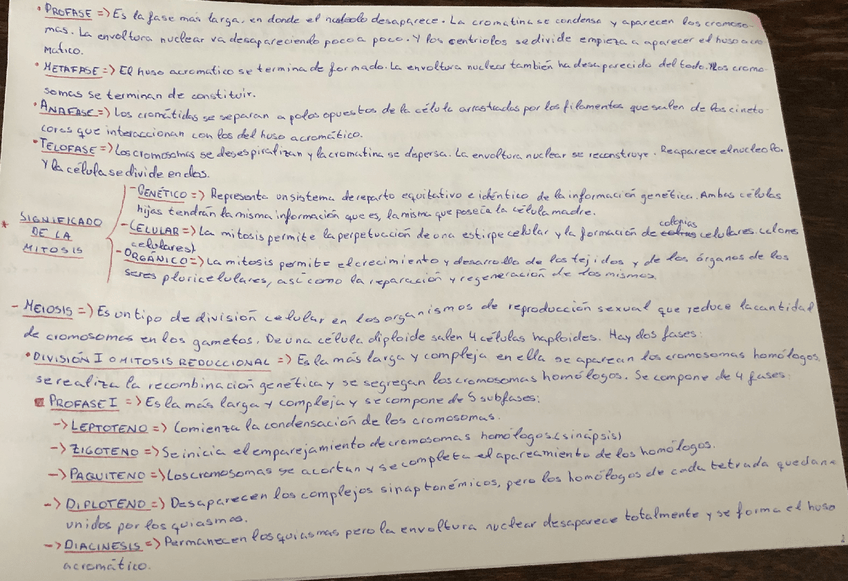 • PROFASE => Es la fase más larga, en donde el nucleolo desaparece. La cromatina se condensa y aparecen los cromoso-
mas. La envoltura nuclear va desapareciendo poco a poco. Y los centriolos se divide empieza a aparecer el huso acro-
matico.
• METAFASE => El huso acromatico se termina de formado. La envoltura nuclear también ha desaparecido del todo. Los cromo-
somas se terminan de constituir.
• ANAFASE => Los cromátidas se separan a polos opuestos de la célula arrastradas por los filamentos que salen de los cineto-
coros que interaccionan con los del huso acromático.
• TELOFASE => Los cromosomas se desespiralizan y la cromatina se dispersa. La envoltura nuclear se reconstruye. Reaparece el nucleolo.
Y la célula se divide en dos.
* SIGNIFICADO DE LA MITOSIS
- GENÉTICO => Representa un sistema de reparto equitativo e idéntico de la información genética. Ambas células
hijas tendrán la misma información que es, la misma que poseía la célula madre.
- CELULAR => La mitosis permite la perpetucción de una estirpe celular y la formación de colopias celulares. (clones
celulares)
- ORGÁNICO => La mitosis permite el crecimiento y desarrollo de los tejidos y de los órganos de los
seres pluricelulares, así como la reparación y regeneración de los mismos.
- MEIOSIS => Es un tipo de división celular en los organismos de reproducción sexual que reduce la cantidad
de cromosomas en los gametos. De una célula diploide salen 4 células haploides. Hay dos fases:
• DIVISIÓN I O MITOSIS REDUCCIONAL => Es la más larga y compleja en ella se aparean los cromosomas homólogos,
se realiza la recombinación genética y se segregan los cromosomas homólogos. Se compone de 4 fases:
PROFASE I => Es la más larga y compleja y se compone de 5 subfases:
-> LEPTOTENO => Comienza la condensación de los cromosomas.
-> ZIGOTENO => Se inicia el emparejamiento de cromosomas homólogos. (sinápsis)
-> PAQUITENO => Los cromosomas se acortan y se completa el apareamiento de los homólogos.
-> DIPLOTENO => Desaparecen los complejos sinaptonémicos, pero los homólogos de cada tetrada quedan
unidos por los quiasmas.
-> DIACINESIS => Permanecen los quiasmas pero la envoltura nuclear desaparece totalmente y se forma el huso
acromático.